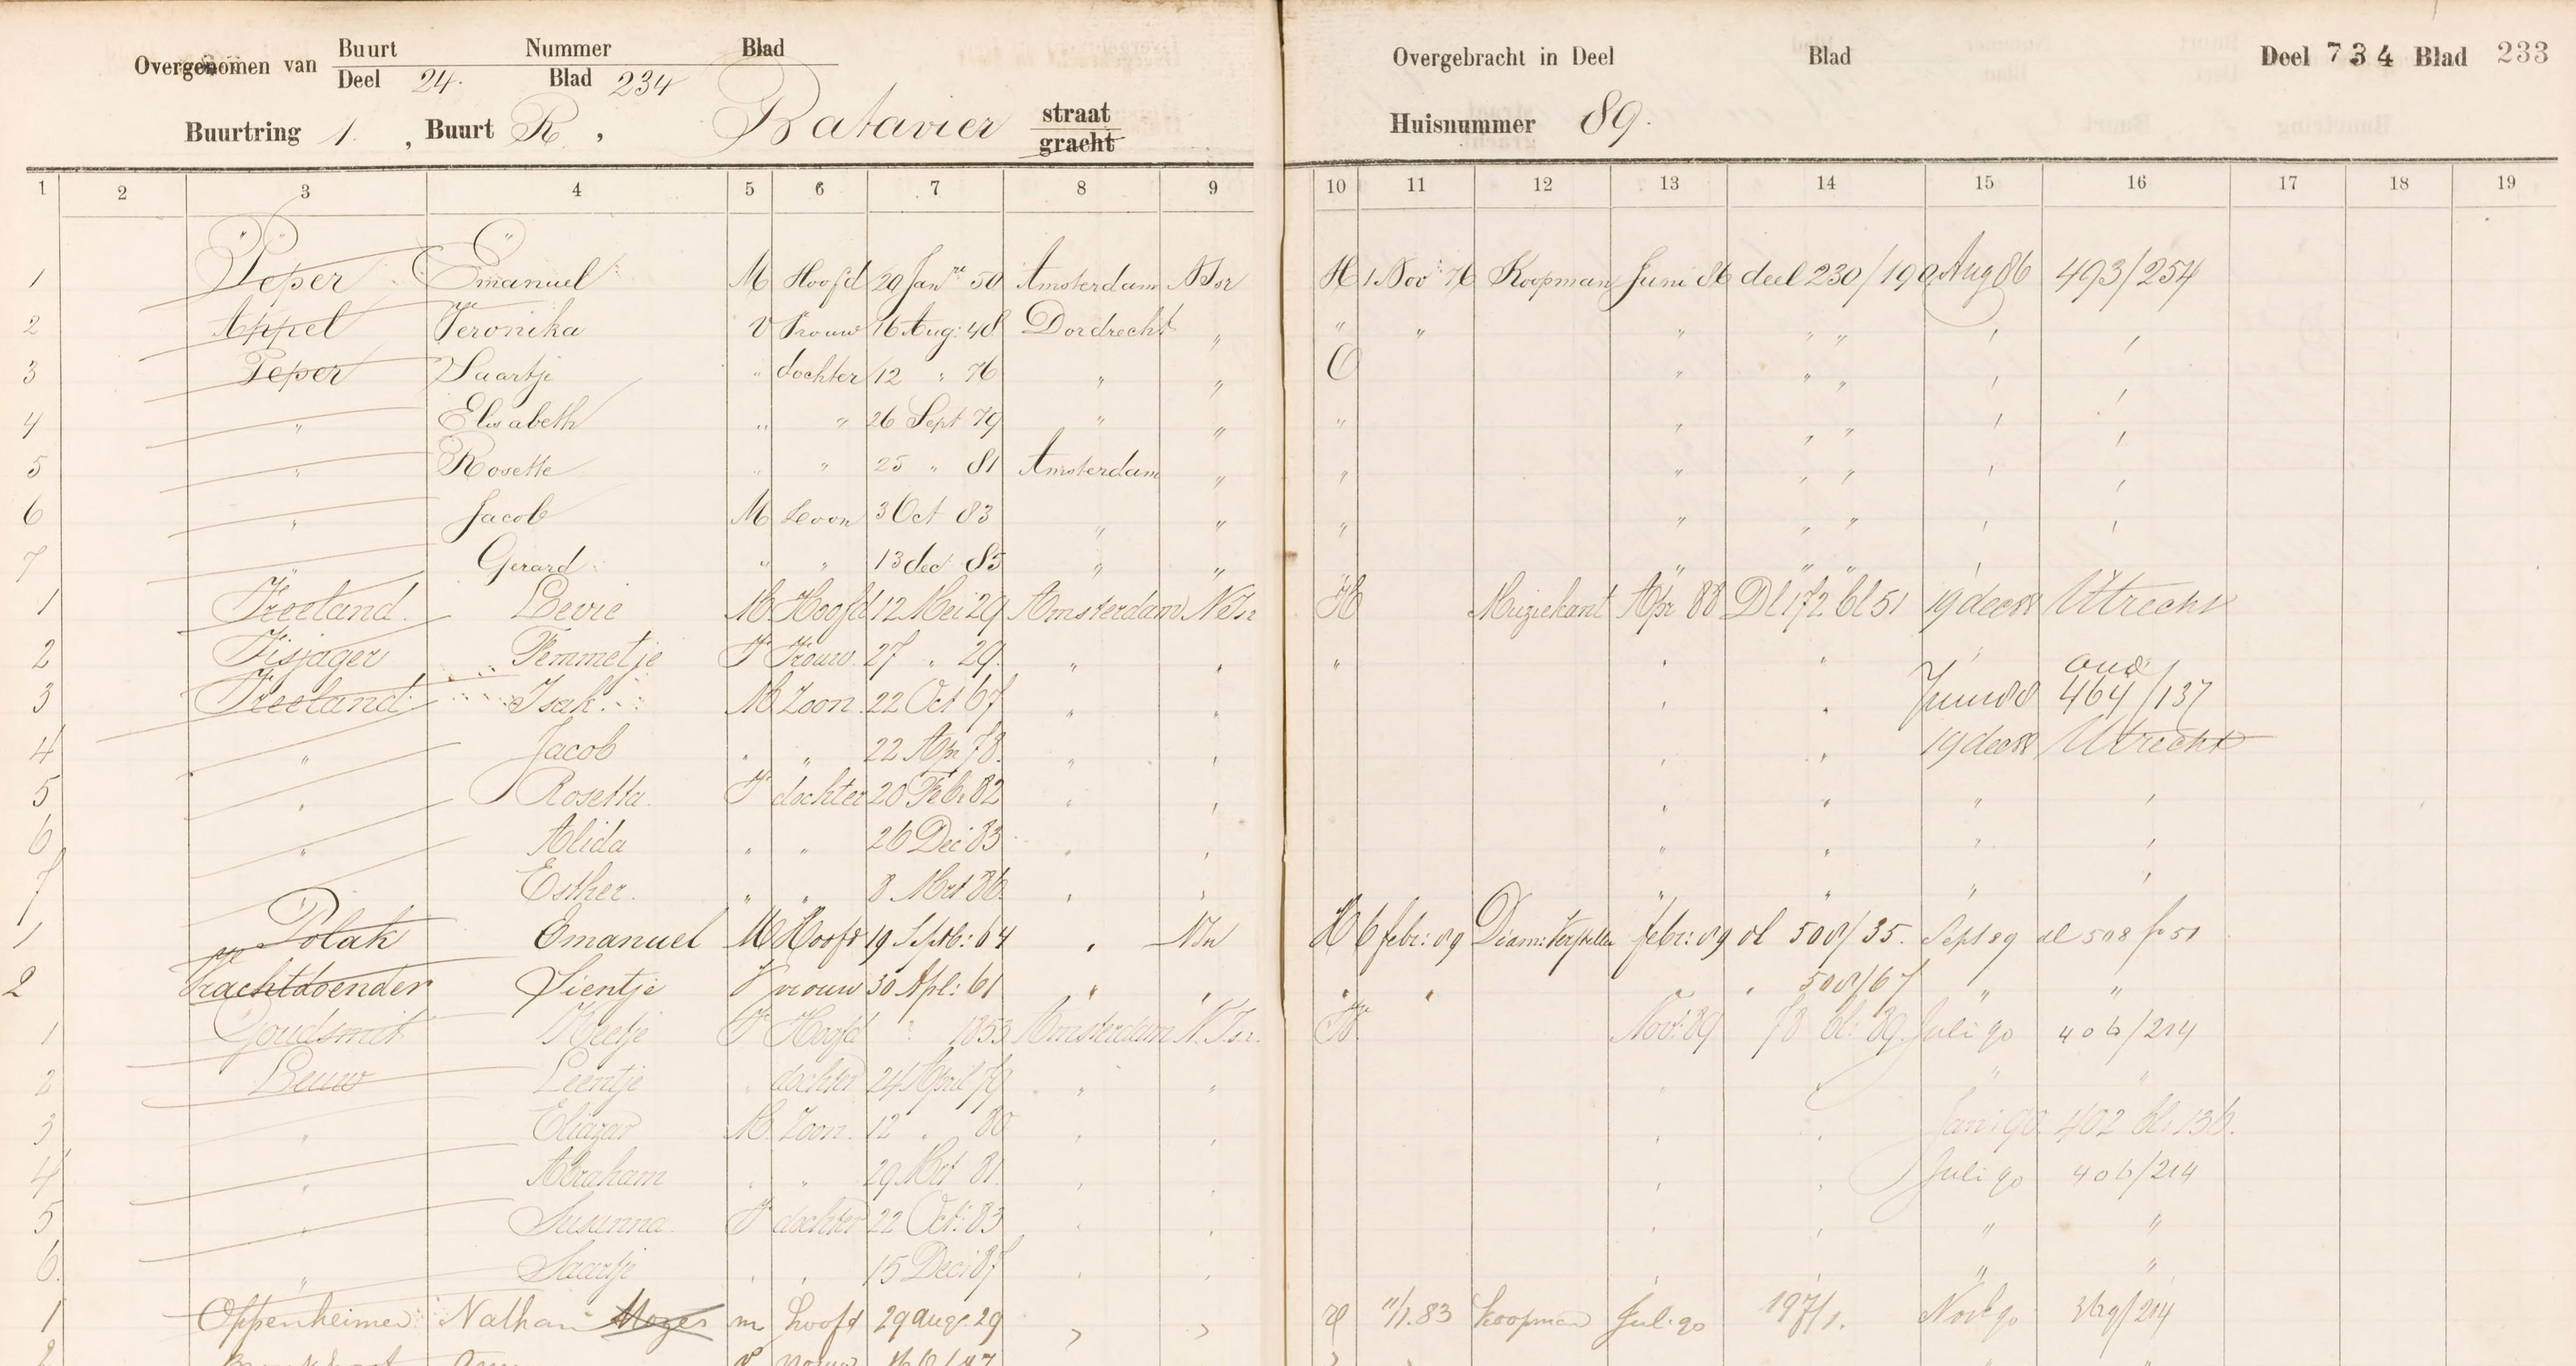 Overgenomen van Buurt Nummer Blad Overgebracht in Deel Blad Deel 734 Blad 233
Deel 24. Blad 234
Buurtring 1. , Buurt R , Batavier straat gracht Huisnummer 89.
1 2 3 4 5 6 7 8 9 10 11 12 13 14 15 16 17 18 19
1 Peper Emanuel M Hoofd 29 Jan 50 Amsterdam NIsr H 1 Nov: 76 Koopman Juni 86 deel 230/190 Aug 86 493/254
2 Appel Veronika V Vrouw 16 Aug: 48 Dordrecht " " " " " " ' '
3 Peper Saartje " dochter 12 " 76 " " O " " " ' '
4 " Elisabeth " " 26 Sept 79 " " " " " " ' '
5 " Rosette " " 25 " 81 Amsterdam " " " " " ' '
6 " Jacob M Zoon 3 Oct 83 " " " " " " ' '
7 " Gerard " " 13 dec 85 " " " " " ' '
1 Vreeland Levie M Hoofd 12 Mei 29 Amsterdam N.Isr H Muziekant Apr 88 Dl 172 bl 51 19 dec 88 Utrecht
2 Visjager Femmetje V Vrouw 27 " 29. " " " " " ' '
3 Vreeland Isak M Zoon 22 Oct 67 " " " " Juni 88 oud 464/137
4 " Jacob " " 22 Apr 78. " " " " 19 dec 88 Utrecht
5 " Rosetta V dochter 20 Feb: 82 " " " " " '
6 " Alida " " 26 Dec: 83 " " " " " '
7 Esther. " " 8 Mrt 86 " " " " " '
1 Polak Emanuel M Hoofd 19 Sept: 64 " NIsr H 6 febr: 89 febr: 89 dl 508/35. Sept 89 dl 508 fo 51
2 Vrachtdoender Sientje V vrouw 30 Apl: 61 " " " " " " 508/67 " "
1 Goudsmit V Hoofd " 1853 Amsterdam N.Isr. H Nov: 89 78 bl: 89. Juli 90 406/214
2 Leuw Leentje " dochter 24 April 79 " " " " "
3 " Eliazar M. Zoon. 12 " 80 " " " " 402 bl: 136.
4 " Abraham " " 29 Mrt 81. " " " " Juli 90 406/214
5 " Susanna. V dochter 22 Oct: 83 " " " " " "
6. " Saartje " " 15 Dec: 87 " " " " " "
1 Oppenheimer Nathan Mozes m hoofd 29 aug. 29 " " 11/1. 83 koopman Juli 90 197/1. Nov 90 369/214
2